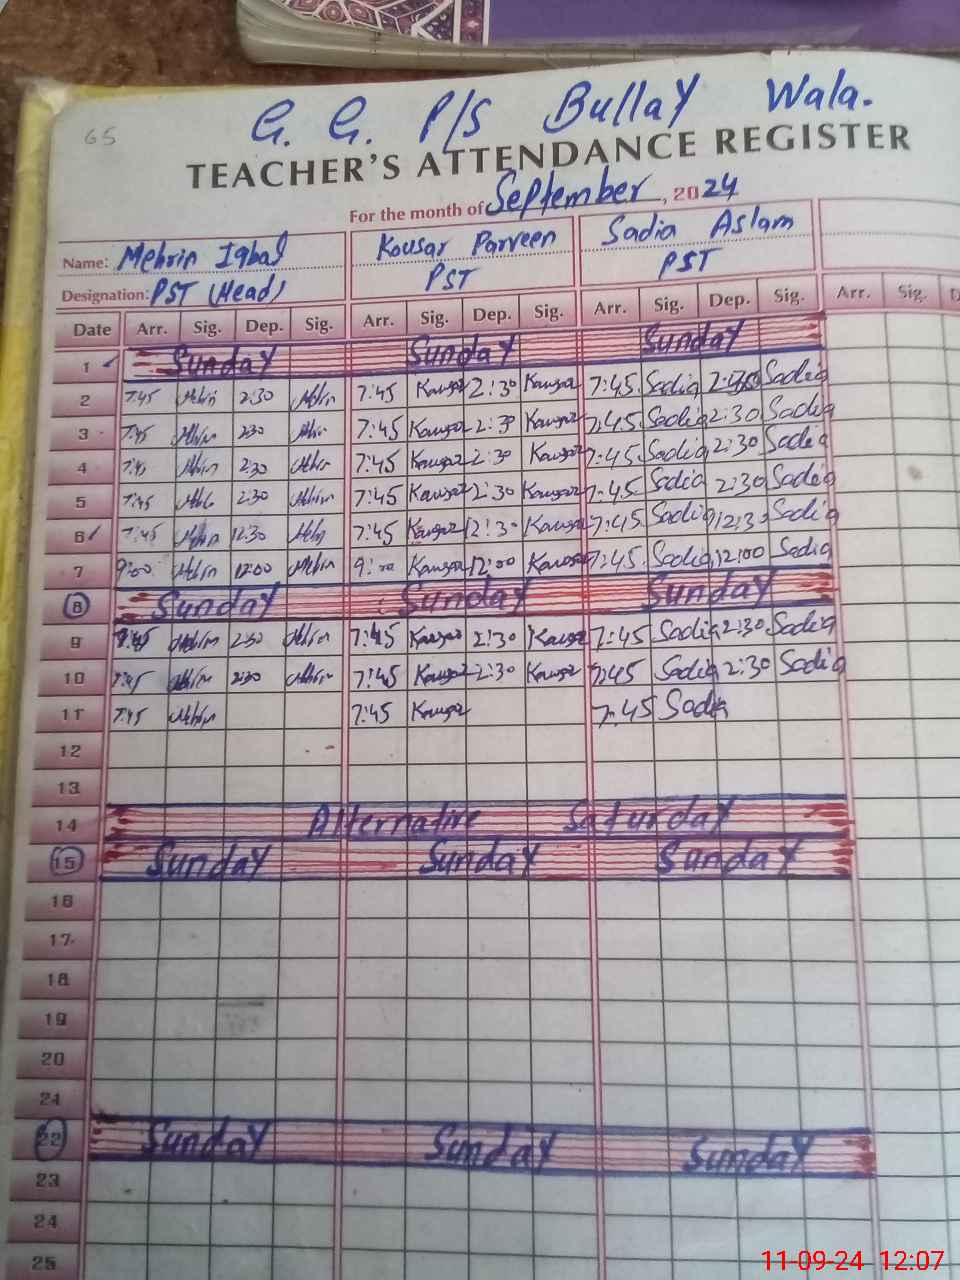 65
G. G. P/S Bullay Wala.
TEACHER'S ATTENDANCE REGISTER
For the month of September, 2024
Name: Mehrin Iqbal Kousar Parveen Sadia Aslam
Designation: PST (Head) PST PST
Date Arr. Sig. Dep. Sig. Arr. Sig. Dep. Sig. Arr. Sig. Dep. Sig. Arr. Sig. D
1 Sunday Sunday Sunday
2 7:45 Mehrin 2:30 Mehrin 7:45 Kausar 2:30 Kausar 7:45 Sadia 2:30 Sadia
3 7:45 Mehrin 2:30 Mehrin 7:45 Kausar 2:30 Kausar 7:45 Sadia 2:30 Sadia
4 7:45 Mehrin 2:30 Mehrin 7:45 Kausar 2:30 Kausar 7:45 Sadia 2:30 Sadia
5 7:45 2:30 Mehrin 7:45 Kausar 2:30 Kausar 7:45 Sadia 2:30 Sadia
6 7:45 Mehrin 12:30 Mehrin 7:45 Kausar 12:30 Kausar 7:45 Sadia 12:30 Sadia
7 9:00 Mehrin 12:00 Mehrin 9:00 Kausar 12:00 Kausar 7:45 Sadia 12:00 Sadia
8 Sunday Sunday Sunday
9 7:45 Mehrin 2:30 Mehrin 7:45 Kausar 2:30 Kausar 7:45 Sadia 2:30 Sadia
10 7:45 Mehrin 2:30 Mehrin 7:45 Kausar 2:30 Kausar 7:45 Sadia 2:30 Sadia
11 7:45 Mehrin 7:45 Kausar 7:45 Sadia
12
13
14 Alternative Saturday
15 Sunday Sunday Sunday
16
17
18
19
20
21
22 Sunday Sunday Sunday
23
24
25
11-09-24 12:07